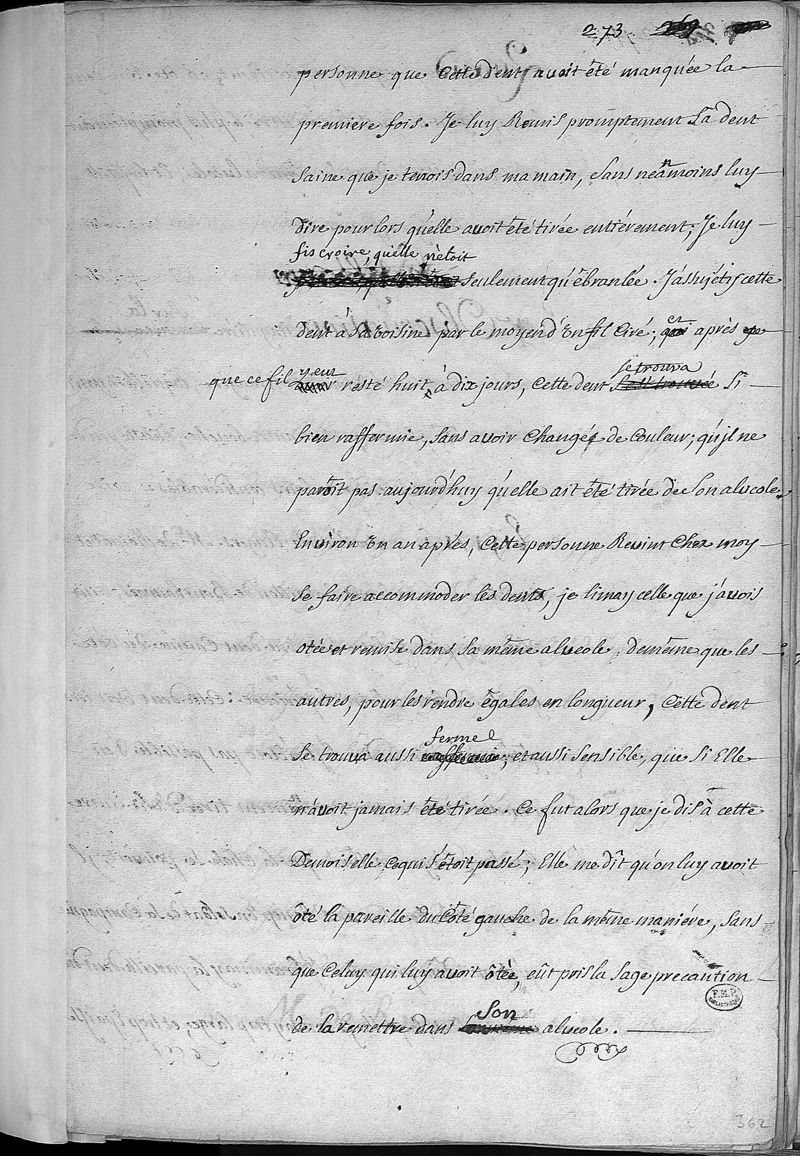 273
personne que cette dent avoit été manquée la
premiere fois. Je luy Remis promptement Sa dent
Saine que je tenois dans ma main, Sans neanmoins luy
dire pour lors qu'elle avoit été tirée entiérement; Je luy
fis croire, qu'elle n'etoit
Seulement qu'ébranlée. J'assujétis cette
dent à Sa voisine par le moyen d'Un fil Ciré; et après
que ce fil y eut resté huit à dix jours, Cette dent se trouva Si
bien raffermie, Sans avoir Changé de Couleur; qu'il ne
paroît pas aujourd'huy qu'elle ait été tirée de Son alveole.
Environ Un an après, Cette personne Revint Chez moy
Se faire accommoder les dents, je limay celle que j'avois
otée et remise dans Sa même alveole, de même que les
autres, pour les rendre égales en longueur, Cette dent
Se trouva aussi ferme; et aussi Sensible, que Si Elle
n'avoit jamais été tirée. Ce fut alors que je dis à cette
Demoiselle, ce qui S'étoit passé; Elle me dît qu'on luy avoit
ôté la pareille du Côté gauche de la même maniére, Sans
que Celuy qui luy avoit ôtée, eût pris la Sage precaution
de la remettre dans Son alveole.
362